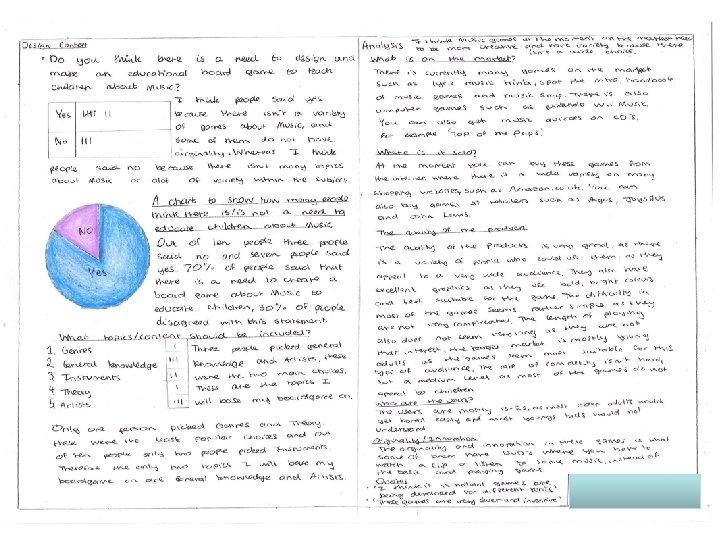 Design Context
• Do you think there is a need to design and
make an educational board game to teach
children about Music?
Yes
No
I think people said yes
because there isn't a variety
of games about Music, and
some of them do not have
originality. Whereas I think
people said no because there isnt many topics
about Music or alot of variety within the subject.
A chart to show how many people
think there is/is not a need to
educate children about Music
NO
Yes
Out of ten people three people
said no and seven people said
yes. 70% of people said that
there is a need to create a
board game about Music to
educate children, 30% of people
disagreed with this statement.
What topics/content should be included?
1. Genres
2. General knowledge
3. Instruments
4. Theory
5. Artists
Three people picked general
knowledge and Artists, these
were the two main choices.
These are the topics I
will base my boardgame on.
Only one person picked Genres and Theory,
these were the least popular choices and out
of ten people only two people picked Instruments.
Therefore the only two topics I will base my
boardgame on are General knowledge and Artists.
Analysis
I think music games at the moment on the market need
to be more creative and have variety because there
isn't a wide choice.
What is on the market?
There is currently many games on the market
such as lyric music trivia, spot the intro, handbook
of music games and music snap. There is also
computer games such as Nintendo Wii Music.
You can also get music quizzes on CD's,
for example 'Top of the Pops'.
Where is it sold?
At the moment you can buy these games from
the internet where there is a wide variety on many
shopping websites, such as Amazon.co.uk. You can
also buy games at retailers such as Argos, Toys R Us
and John Lewis.
The quality of the product
The quality of the products is very good, as there
is a variety of people who could use them, as they
appeal to a very wide audience. They also have
excellent graphics as they use bold, bright colours
and text suitable for the game. The difficulty in
most of the games seems rather simple, as they
are not very complicated. The length of playing
also does not seem very long as they are not
that interest, the target market is mostly young
adults as the games seem most suitable for this
type of audience. The rate of complexity isn't hard,
but a medium level as most of the games do not
appeal to children
Who are the users?
The users are mostly 15-25, as most older adults would
get bored easily and most younger kids would not
understand
Originality/Innovation
The originality and innovation in these games is what
some of them have DVD's where you have to
watch a clip or listen to some music, instead of
the basic card playing games.
Quotes
• 'I think it is brilliant games are
being developed for different topics'
• 'These games are very clever and innovative'